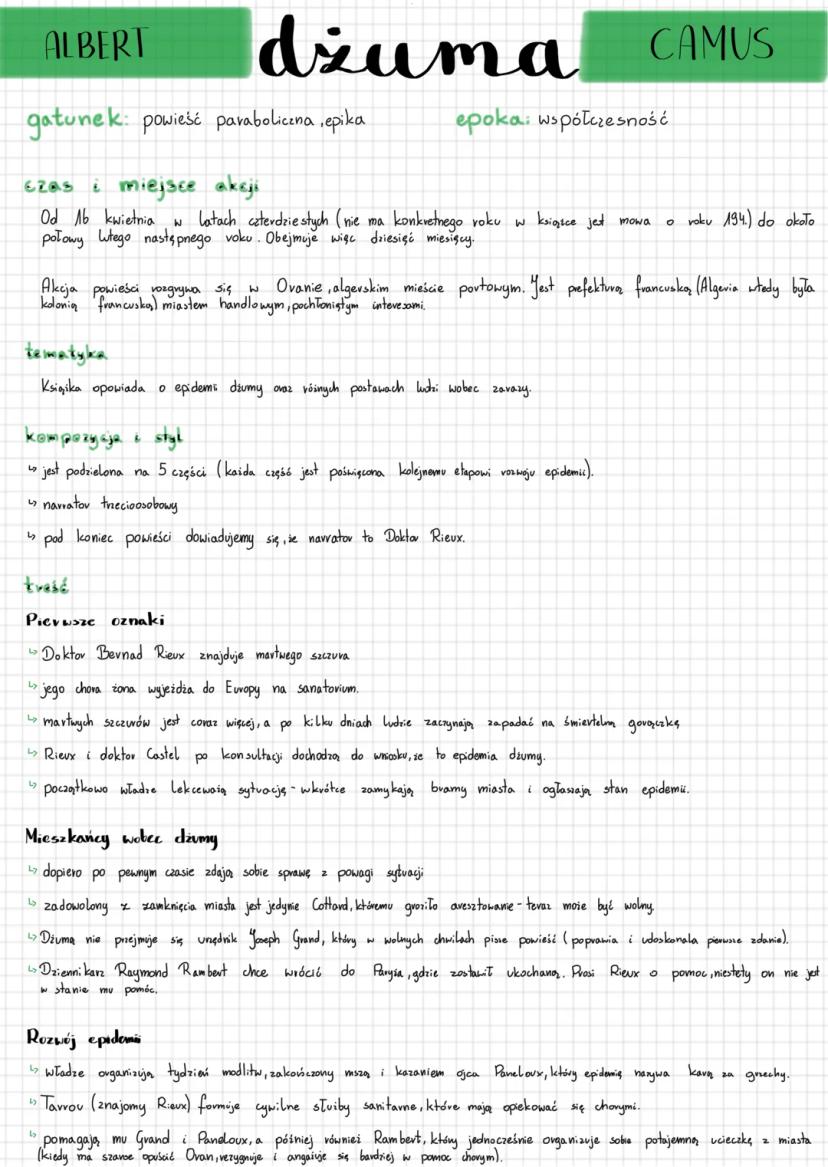 ALBERT dżuma CAMUS
gatunek: powieść paraboliczna, epika epoka: współczesność
czas i miejsce akcji
Od 16 kwietnia w latach czterdziestych (nie ma konkretnego roku w książce jest mowa o roku 194.) do około
połowy lutego następnego roku. Obejmuje więc dziesięć miesięcy.
Akcja powieści rozgrywa się w Oranie, algerskim mieście portowym. Jest prefekturą francuską (Algeria wtedy była
kolonią francuską) miastem handlowym, pochłoniętym interesami.
tematyka
Książka opowiada o epidemi dżumy oraz różnych postawach ludzi wobec zarazy.
kompozycja i styl
↳ jest podzielona na 5 części (każda część jest poświęcona kolejnemu etapowi rozwoju epidemii).
↳ narrator trzecioosobowy
↳ pod koniec powieści dowiadujemy się, że narrator to Doktor Rieux.
treść
Pierwsze oznaki
↳ Doktor Bernad Rieux znajduje martwego szczura
↳ jego chora żona wyjeżdża do Europy na sanatorium.
↳ martwych szczurów jest coraz więcej, a po kilku dniach ludzie zaczynają zapadać na śmiertelną gorączkę
↳ Rieux i doktor Castel po konsultacji dochodzą do wniosku, że to epidemia dżumy.
↳ początkowo władze lekceważą sytuację - wkrótce zamykają bramy miasta i ogłaszają stan epidemii.
Mieszkańcy wobec dżumy
↳ dopiero po pewnym czasie zdają sobie sprawę z powagi sytuacji
↳ zadowolony z zamknięcia miasta jest jedynie Cottard, któremu groziło aresztowanie - teraz może być wolny.
↳ Dżumą nie przejmuje się urzędnik Joseph Grand, który w wolnych chwilach pisze powieść (poprawia i udoskonala pierwsze zdanie).
↳ Dziennikarz Raymond Rambert chce wrócić do Paryża, gdzie zostawił ukochaną. Prosi Rieux o pomoc, niestety on nie jest
w stanie mu pomóc.
Rozwój epidemii
↳ władze organizują tydzień modlitw, zakończony mszą i kazaniem ojca Paneloux, który epidemię nazywa karą za grzechy.
↳ Tarrou (znajomy Rieux) formuje cywilne służby sanitarne, które mają opiekować się chorymi.
↳ pomagają mu Grand i Paneloux, a później również Rambert, który jednocześnie organizuje sobie potajemną ucieczkę z miasta
(kiedy ma szanse opuścić Oran, rezygnuje i angażuje się bardziej w pomoc chorym).